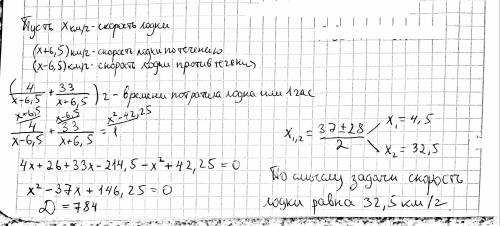 Пусть x км/ч - скорость лодки
(x+6,5) км/ч - скорость лодки по течению
(x-6,5) км/ч - скорость лодки против течения
(4/x-6,5 + 33/x+6,5) ч - времени потратила лодка или 1 час
x+6,5 x-6,5 x²-42,25
4/x-6,5 + 33/x+6,5 = 1
4x+26+33x-214,5-x²+42,25=0
x²-37x+146,25=0
D=784
x₁,₂ = 37±28/2
x₁=4,5
x₂=32,5
По смыслу задачи скорость
лодки равна 32,5 км/ч.